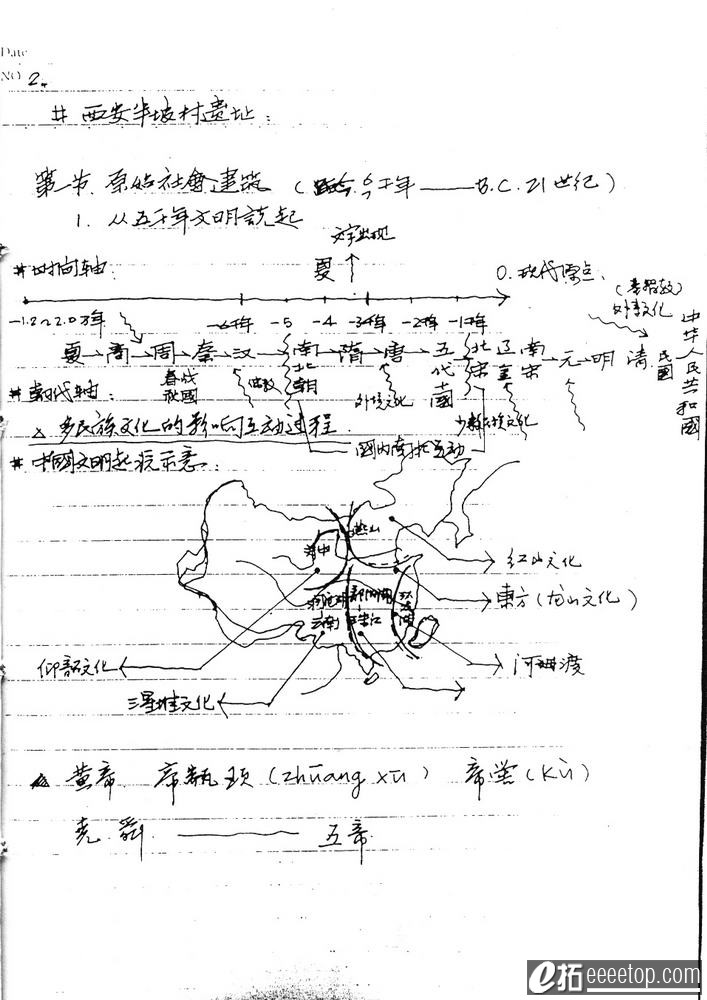 Date
NO 2.
# 西安半坡村遗址:
第一节. 原始社會建筑 (距今 6千年 —— B.C. 21世纪)
1. 从五千年文明説起
文字出现
# 时间轴: 夏 0. 现代原点、
-1.2~2.0万年 -6千年 -5 -4 -3千年 -2千年 -1千年
(基督教)
外来文化
夏 商 周 秦 汉 南北朝 隋 唐 五代十國 北宋 辽金 南宋 元 明 清 民國 中华人民共和國
春秋战國
# 朝代轴: 佛教 外域文化 少数民族文化
△ 多民族文化的影响互动过程.
國内南北互动
# 中國文明起源示意:
燕山
河中
云南
珠江
红山文化
東方(龙山文化)
仰韶文化
河姆渡
三星堆文化
△ 黄帝 帝颛顼(zhuāng xū) 帝喾(Kù)
尧. 舜. —— 五帝.
e拓 eeeetop.com